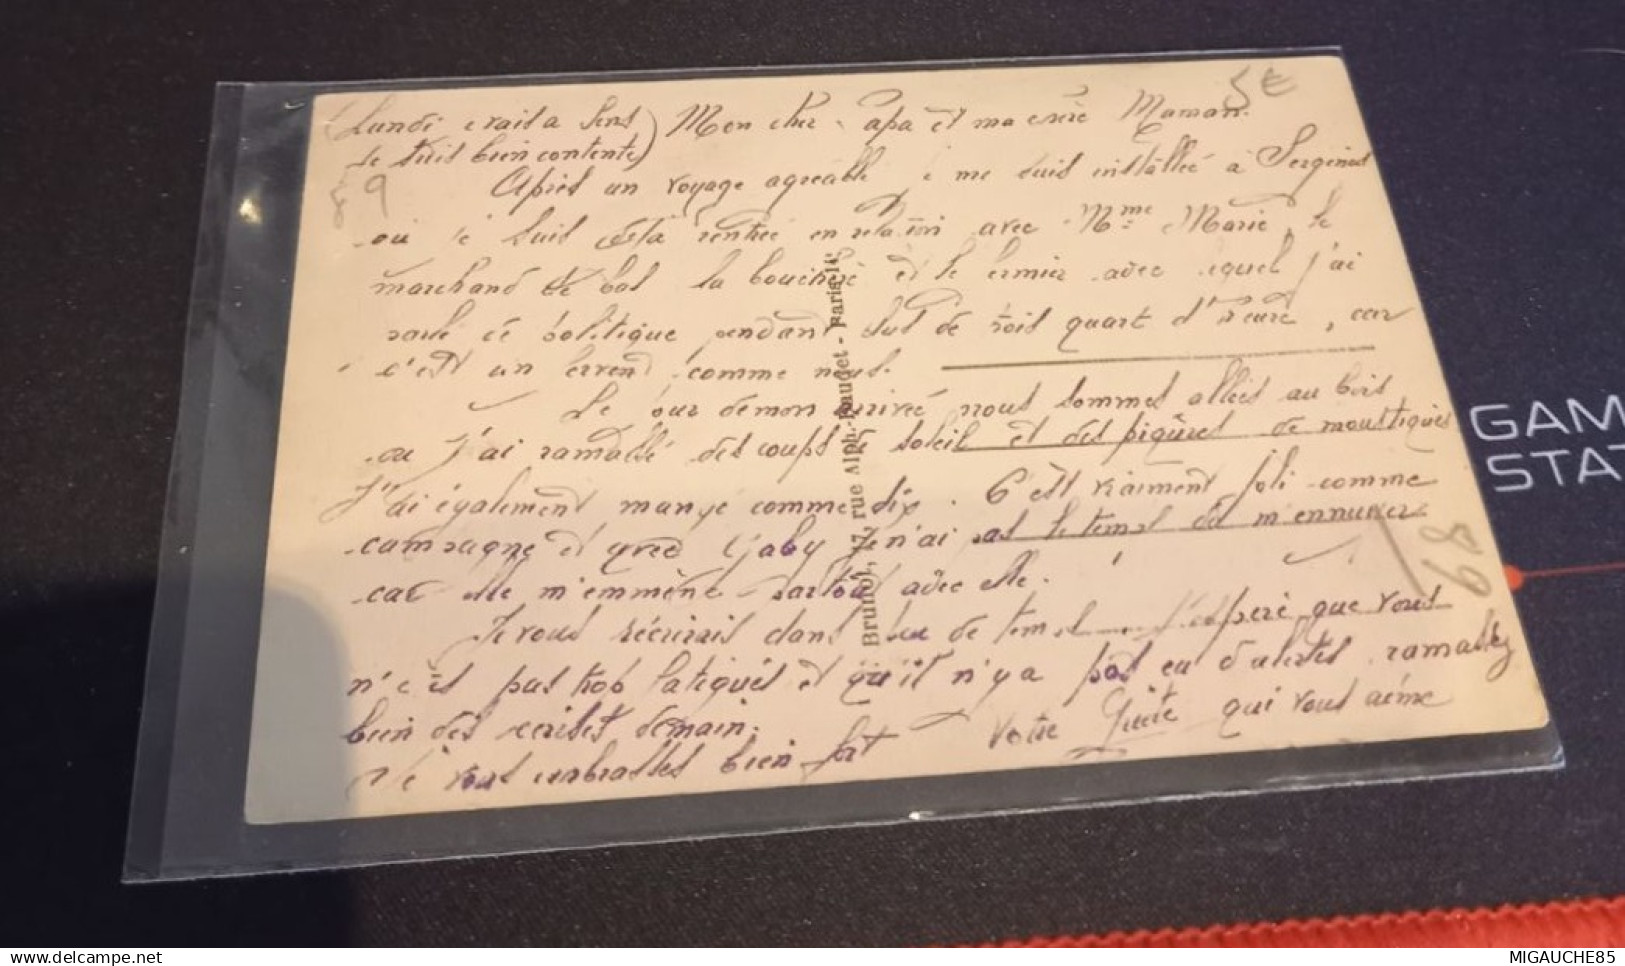 (Lundi irait a Sens) Mon cher Papa et ma chère Maman.
Je suis bien contente)
Après un voyage agréable je me suis installée à Sergines
où je suis déjà rentrée en relation avec Mme Marie, le
marchand de la bouchère et le fermier avec lequel j'ai
parlé de politique pendant plus de trois quart d'heure, car
c'est un comme nous.
Le jour de mon arrivée nous sommes allées au bois
ou j'ai ramassé des coups de soleil et des piqûres de moustiques
J'ai également mangé comme dix. C'est vraiment joli comme
campagne et avec Gaby je n'ai pas le temps de m'ennuyer
car elle m'emmène partout avec elle.
Je vous récrirais dans peu de temps j'espère que vous
n'êtes pas trop fatigués et qu'il n'y a pas eu d'alertes ramassez
bien des cerises demain.
Je vous embrasses bien fort Votre qui vous aime
Brunoi, 17, rue Alph.-Baudet - Paris 14e
5€
89
68
GAM
STAT
MIGAUCHE85